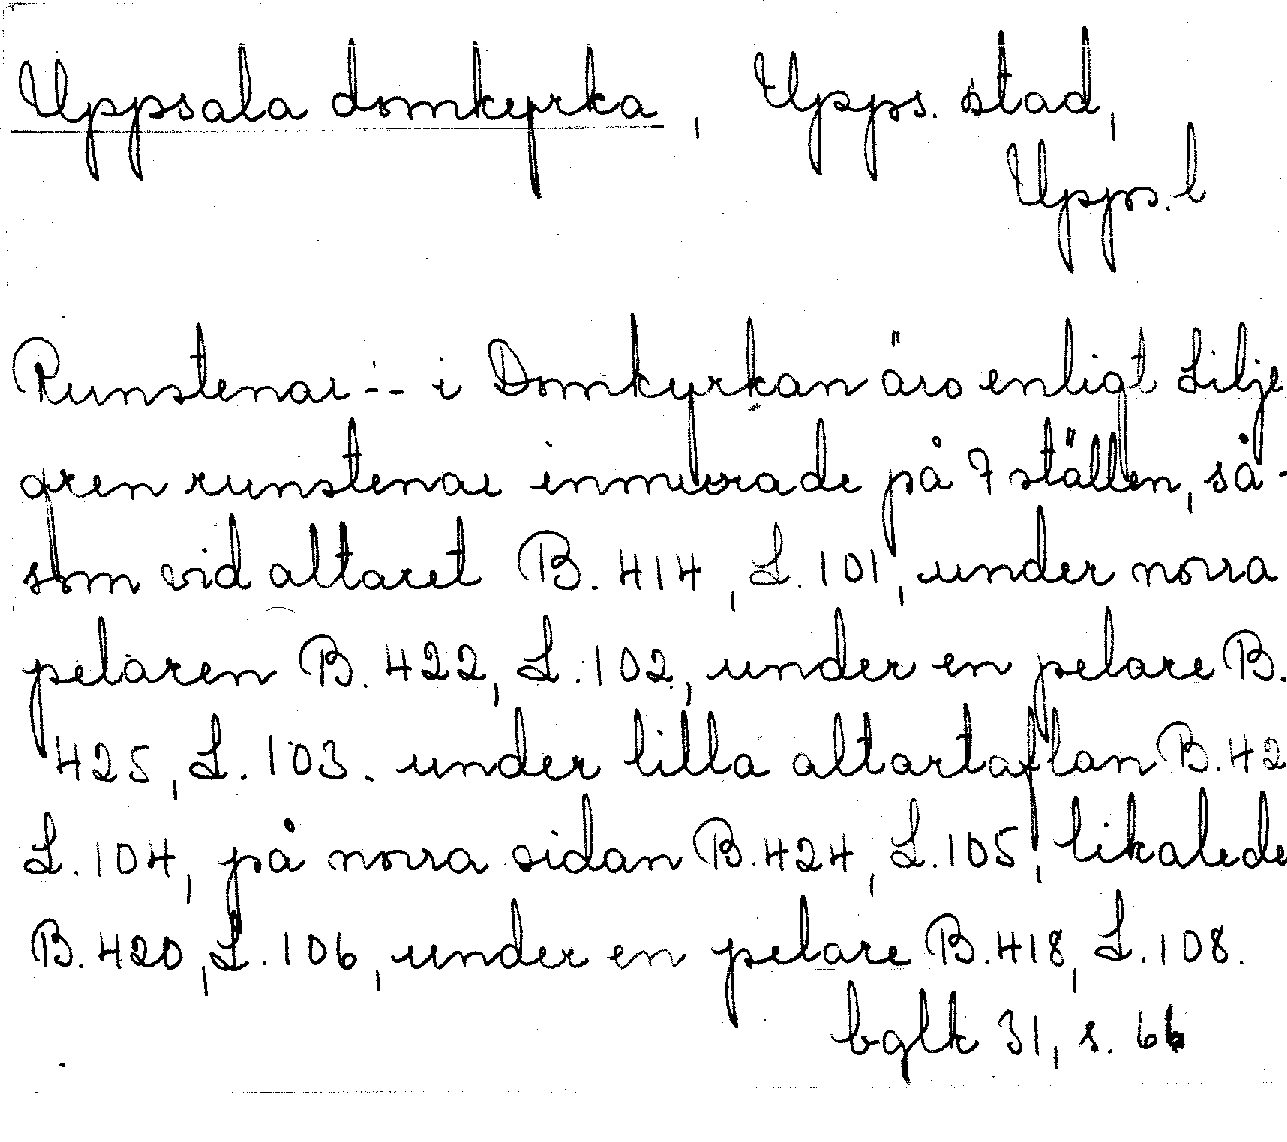 Uppsala domkyrka, Upps. stad,
Upps. l
Runstenar -- i Domkyrkan äro enligt Lilje
gren runstenar inmurade på 7 ställen, så-
som vid altaret B. 414, L. 101, under norra
pelaren B. 422, L. 102, under en pelare B.
425, L. 103. under lilla altartaflan B. 42
L. 104, på norra sidan B. 424, L. 105, likalede
B. 420, L. 106, under en pelare B. 418, L. 108.
bglk 31, s. 66